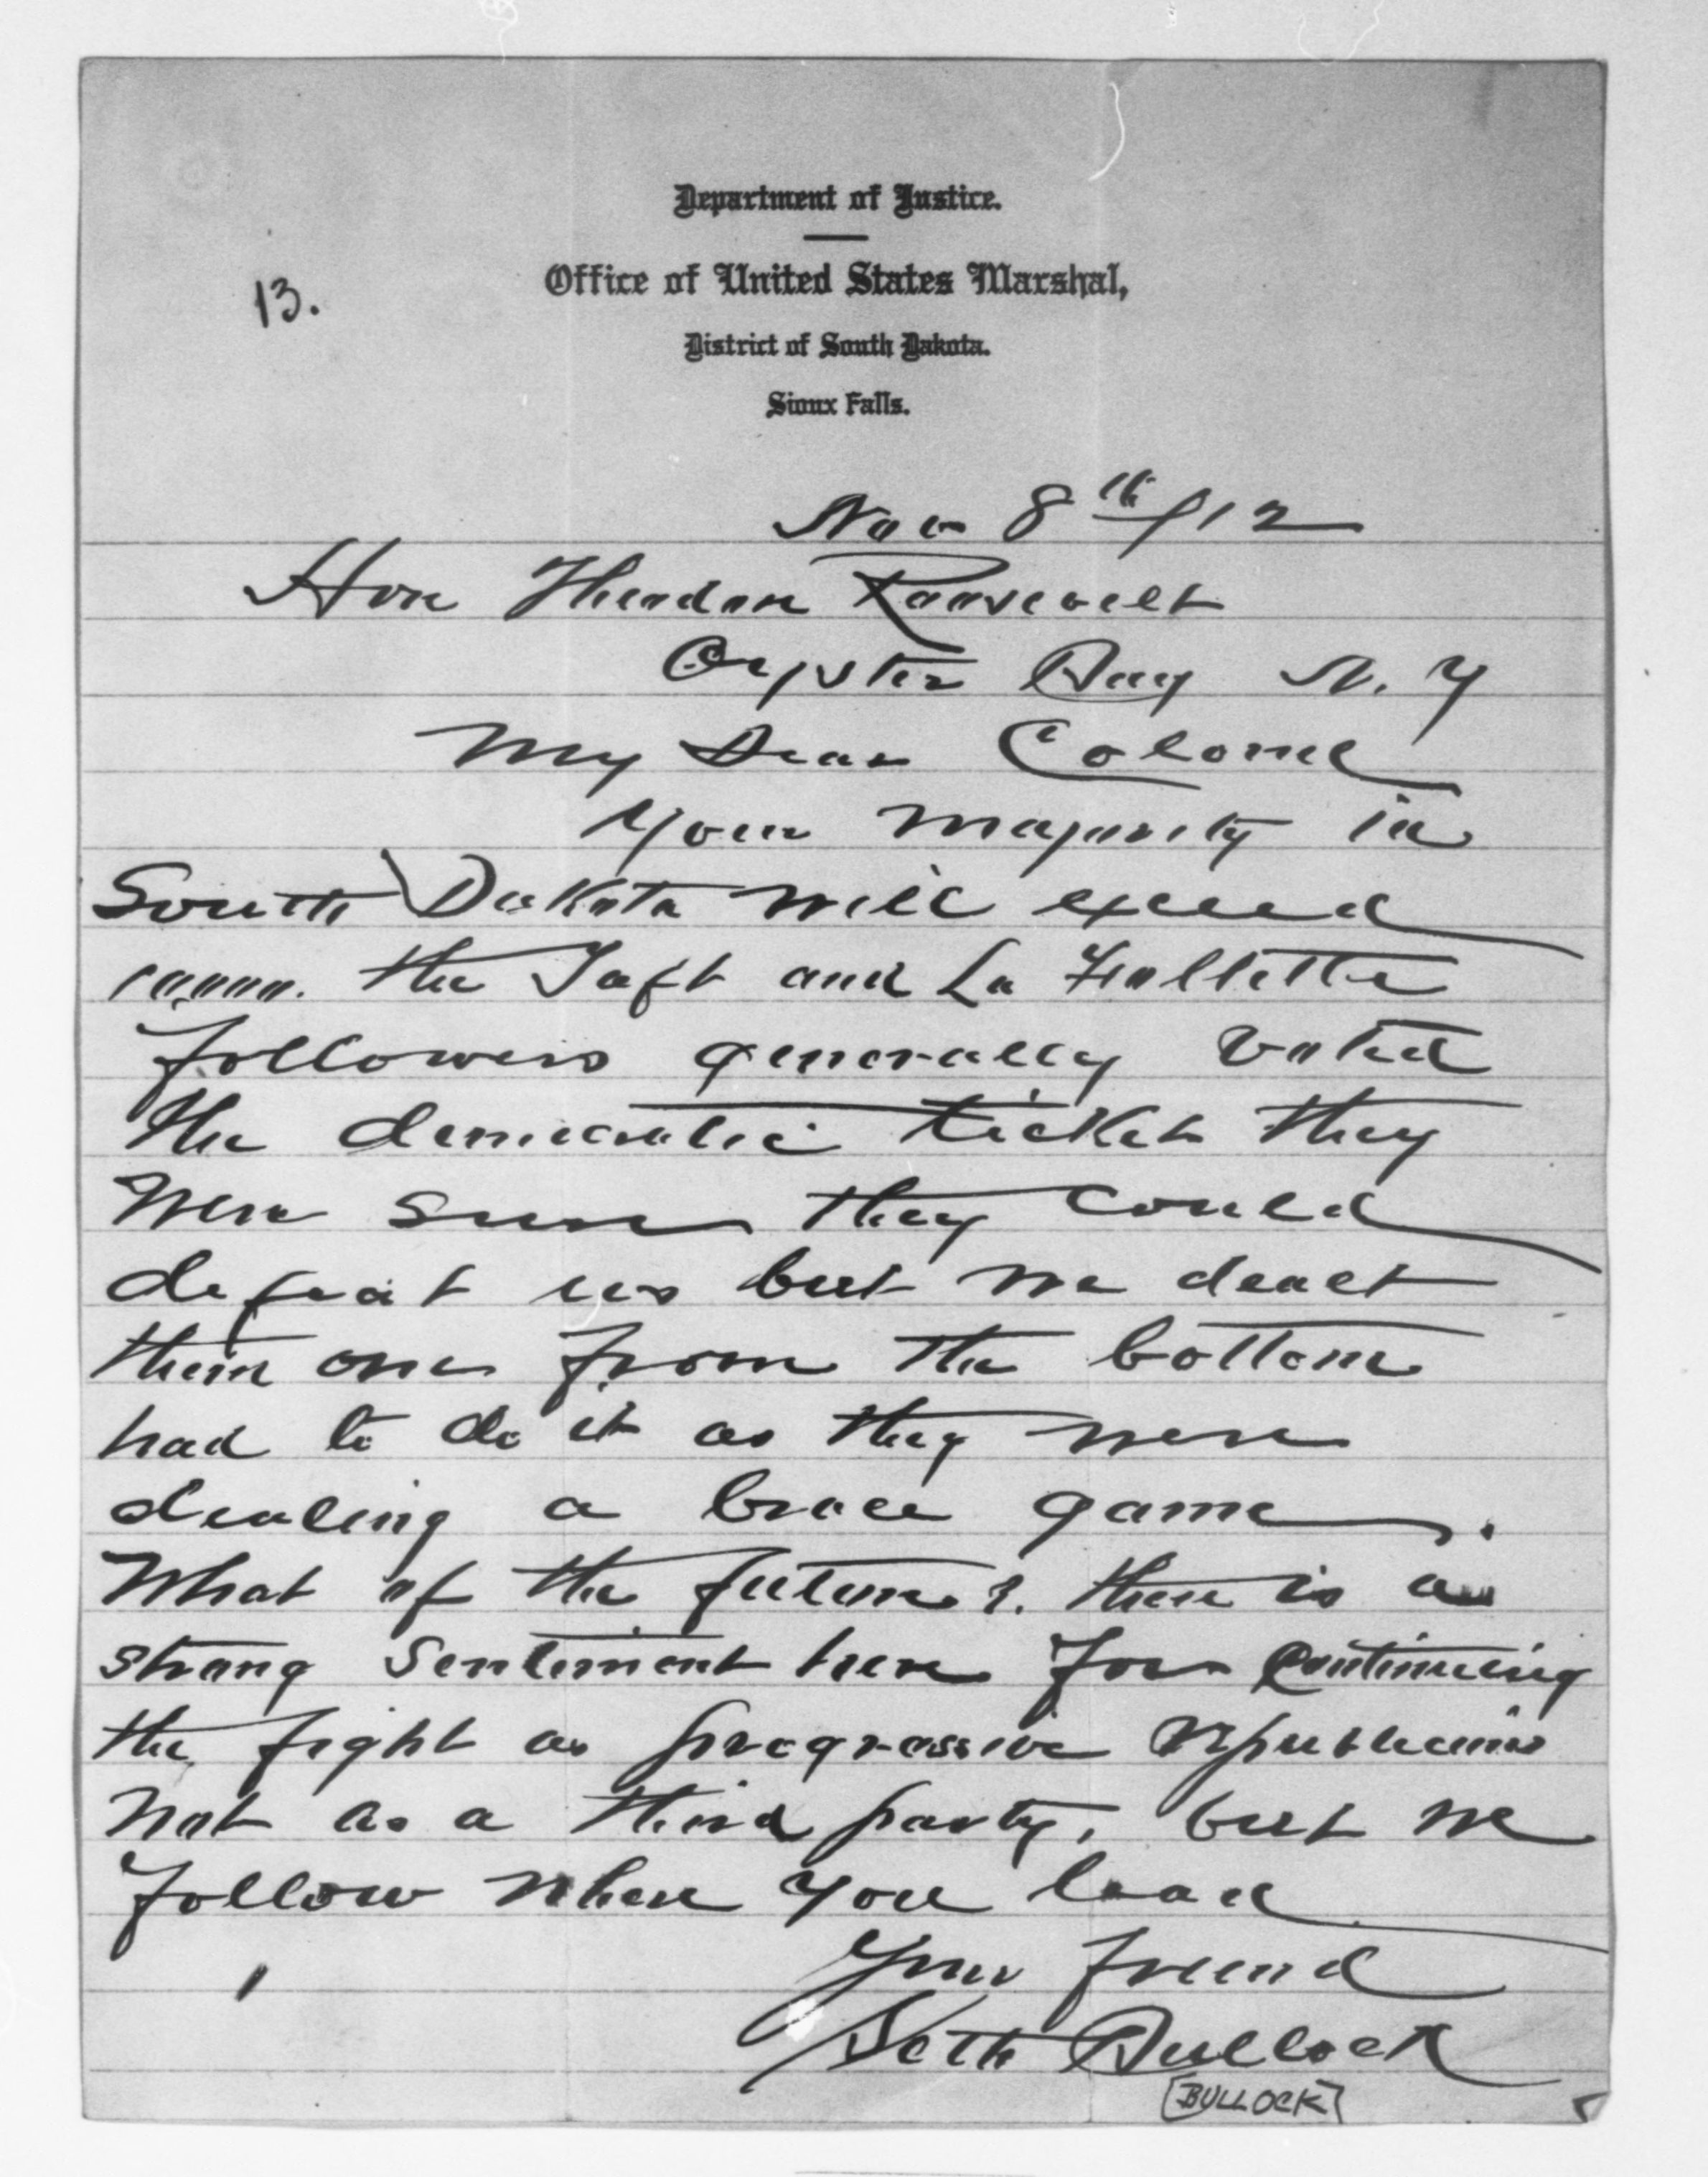 Department of Justice.
Office of United States Marshal,
District of South Dakota.
Sioux Falls.
13.
Nov 8th/12
Hon Theodore Roosevelt
Oyster Bay N. Y
My Dear Colonel
Your majority in
South Dakota will exceed
10,000. the Taft and La Follette
followers generally voted
the democratic ticket they
were sure they could
defeat us but we dealt
them one from the bottom
had to do it as they were
dealing a brace game.
What of the future?. there is a
strong sentiment here for continuing
the fight as progressive republicans
not as a third party, but we
follow where you lead
Your friend
Seth Bullock
[BULLOCK]